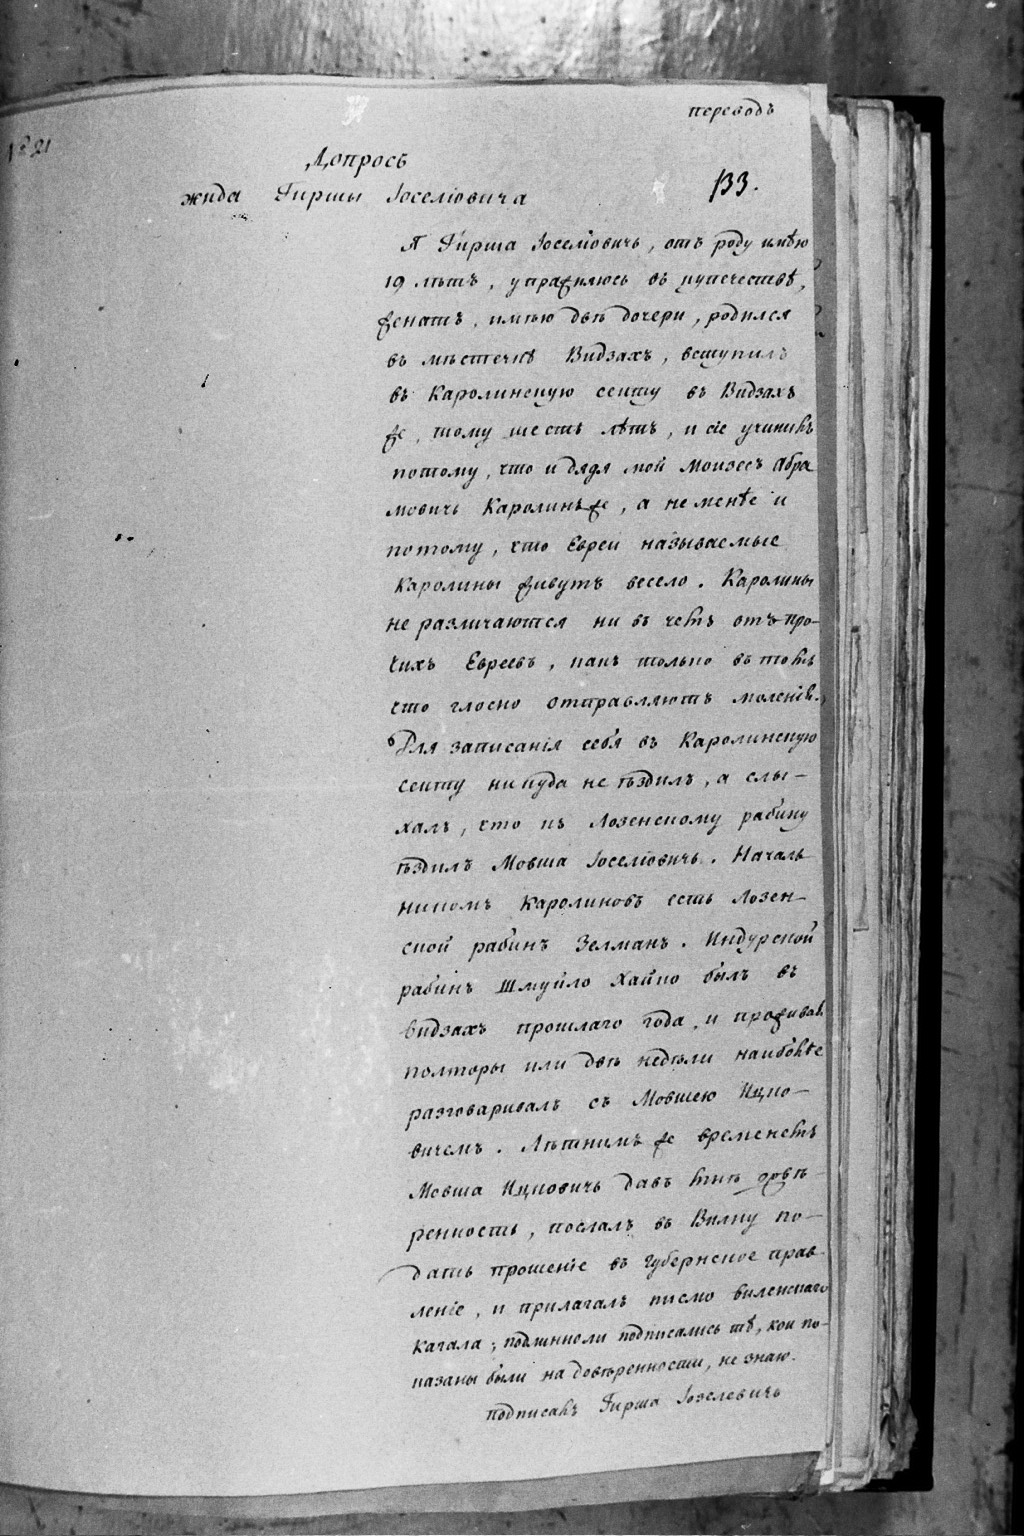 переводъ
№ 21
Допросъ
133.
жида Гиршы Іоселіовича
Я Гирша Іоселіовичь, отъ роду имѣю
19 лѣтъ, упражняюсь въ купечествѣ,
женатъ, имѣю двѣ дочери, родился
въ мѣстечкѣ Видзахъ, вступилъ
въ Каролинскую секту въ Видзахъ
же, тому шесть лѣтъ, и сіе учинилъ
потому, что и дядя мой Моизесъ Абра
мовичь Каролинъ же, а не менѣе и
потому, что Евреи называемые
Каролины живутъ весело. Каролины
не различаются ни въ чемъ отъ про-
чихъ Евреевъ, какъ только въ томъ
что глосно отправляютъ моленіе.
Для записанія себя въ Каролинскую
секту никуда не ѣздилъ, а слы-
халъ, что къ Лозенскому рабину
ѣздилъ Мовша Іоселіовичь. Началь
никомъ Каролиновъ есть Лозен-
ской рабинъ Зелманъ. Индурской
рабинъ Шмуйло Хайко былъ въ
Видзахъ прошлаго года, и проживалъ
полторы или двѣ недѣли наиболѣе
разговаривалъ съ Мовшею Ицко-
вичемъ. Лѣтнимъ же временемъ
Мовша Ицковичь давъ мнѣ довѣ-
ренность, послалъ въ Вилну по-
дать прошеніе въ Губернское прав
леніе, и прилагалъ писмо виленскаго
Кагала; подлинноли подписались тѣ, кои по-
казаны были на довѣренности, не знаю.
подписалъ Гирша Іозелевичь